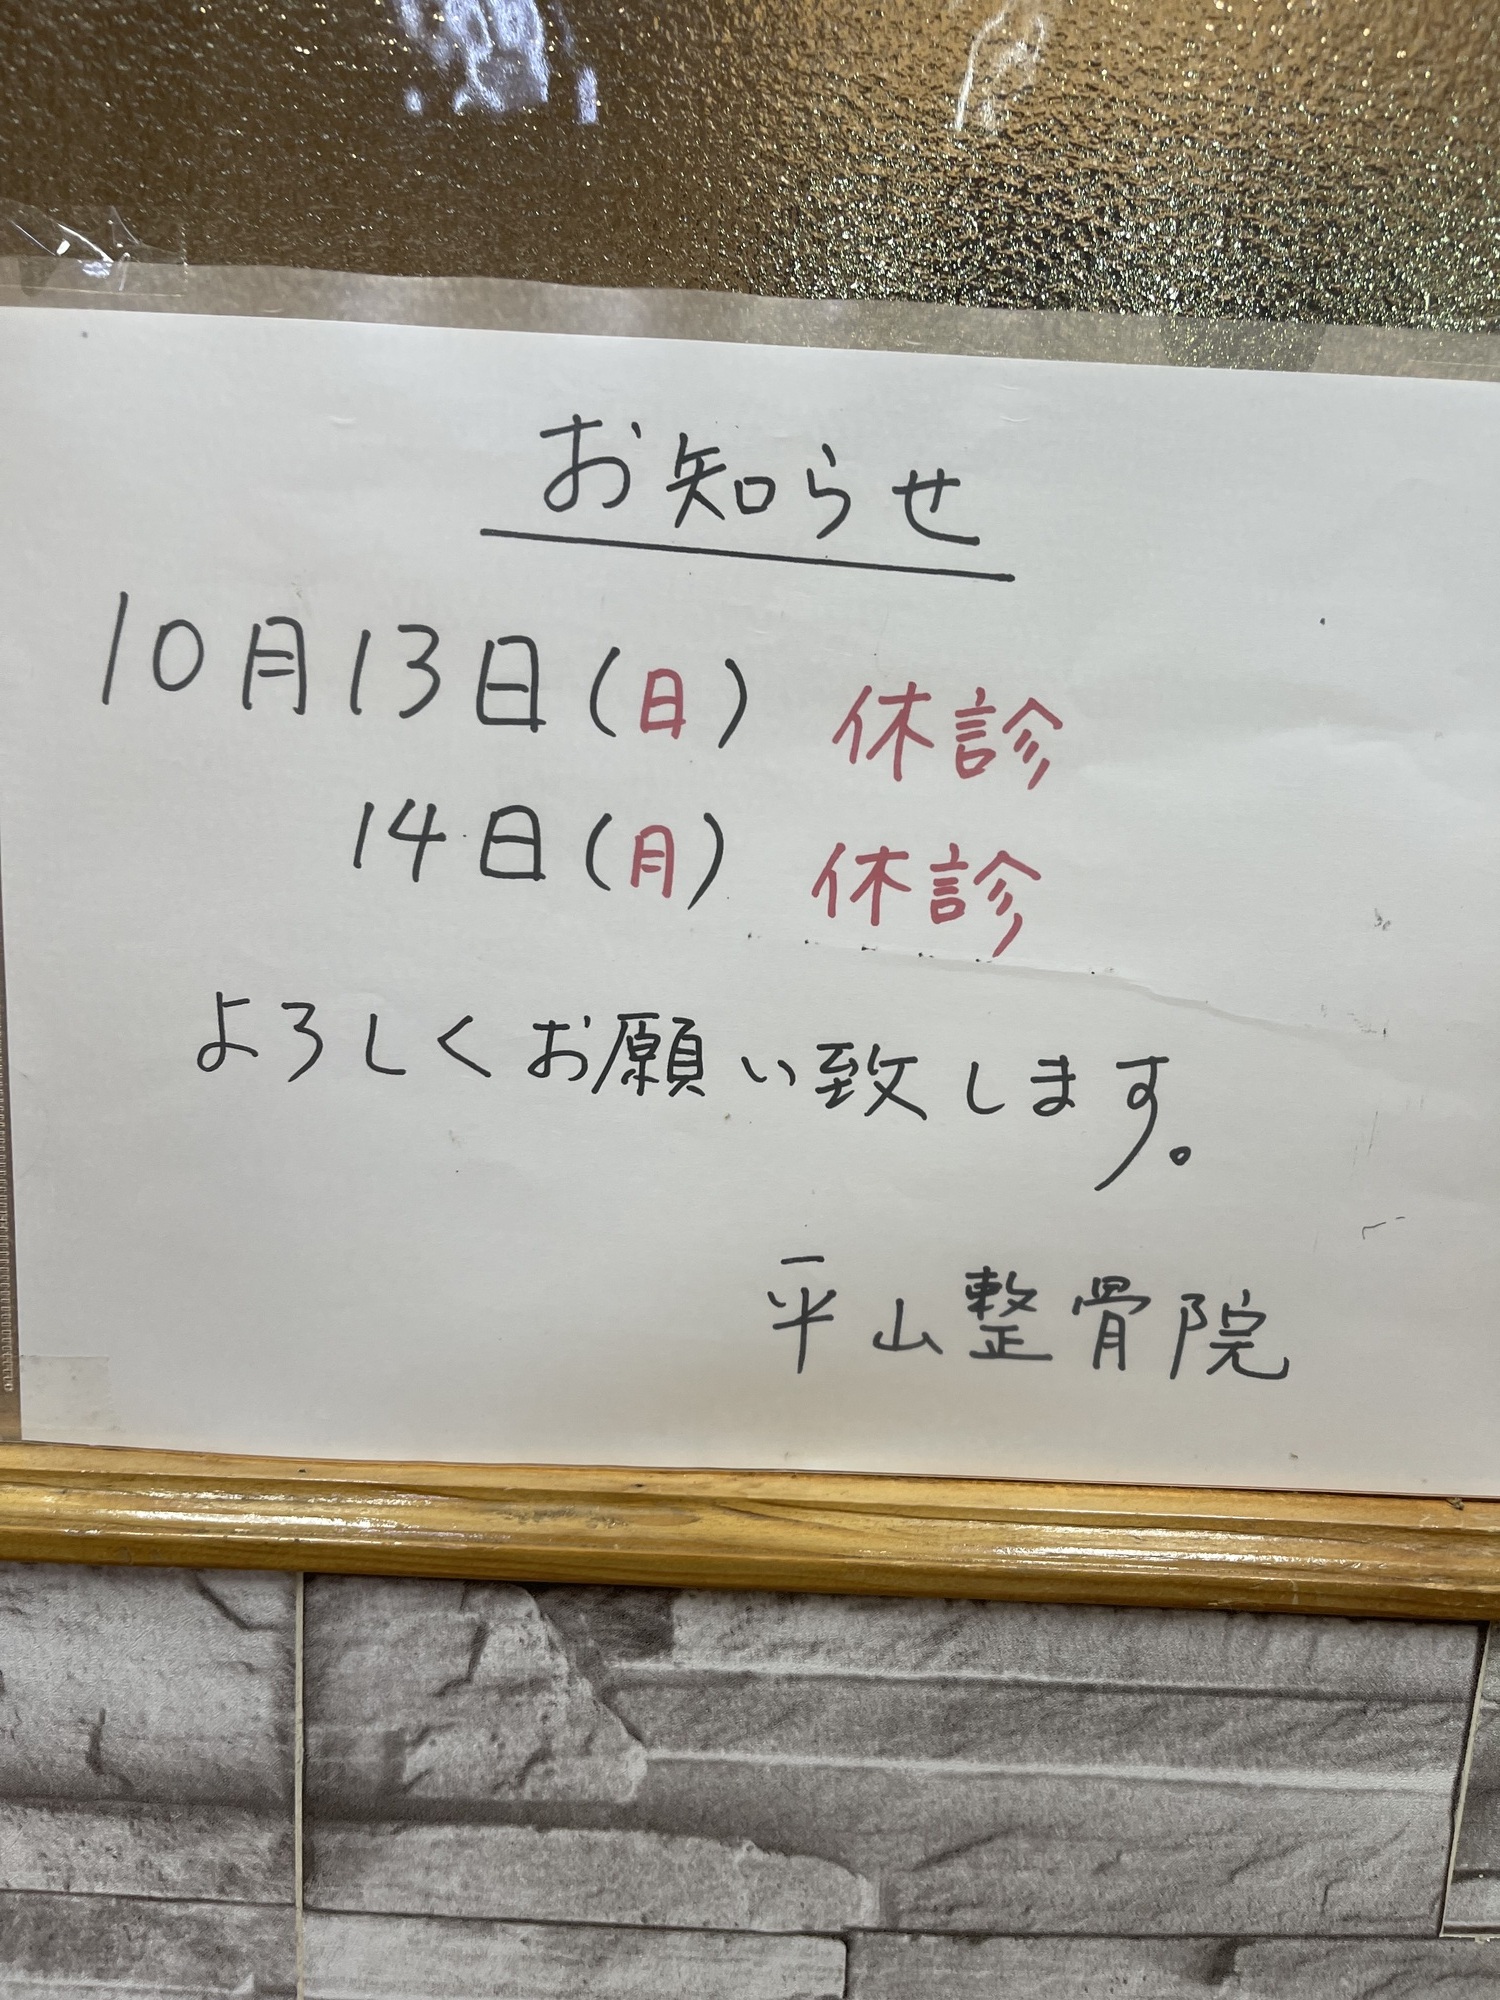 お知らせ
10月13日(日) 休診
14日(月) 休診
よろしくお願い致します。
平山整骨院